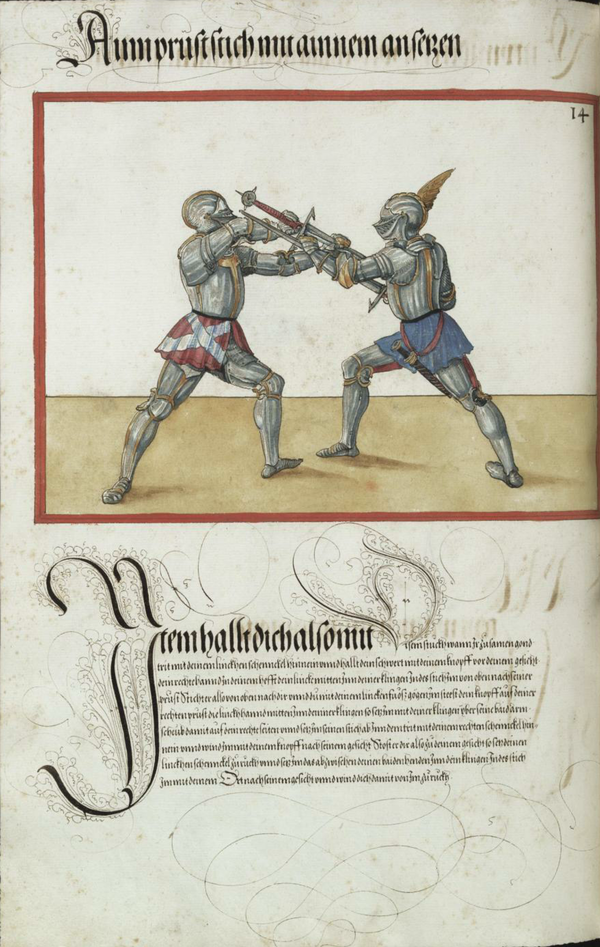 Ain prust stich mit ainnem ansetzen
14
Item hallt dich also mit disem stuckh wann Ir zusamen gond
trit mit deinem linckhen schennckel hinnein vnnd hallt dein schwert mit deinem knopff vor deinem gesicht
dein rechte hannd In deinem hefft dein lincke mitten Inn der clingen Inndes stich Im von oben nach seiner
prust Sticht er also von oben nach dir vnnd du mit deinem linckenn fuoß gegen Im steest dein knopff auf deiner
rechten prust die linckh hannd mitten Inn deiner klingen so setz Im mit der klingen yber sein baid arm
scheub damit auf dein rechte seiten vnnd setz Im seinen stich ab Inn dem trit mit deinem rechten schennckel hin
nein vnnd wind Im mit deinem knopff nach seinem gesicht Stost er dir also zu deinem gesicht so setz deinen
linckhen schennckel zuruckh vnnd setz Im das ab zwischen deinen baiden henden Inn dein klingen Inndes stich
Im mit deinem Ort nach seinem gesicht vnnd wind dich damit von Im zuruckh